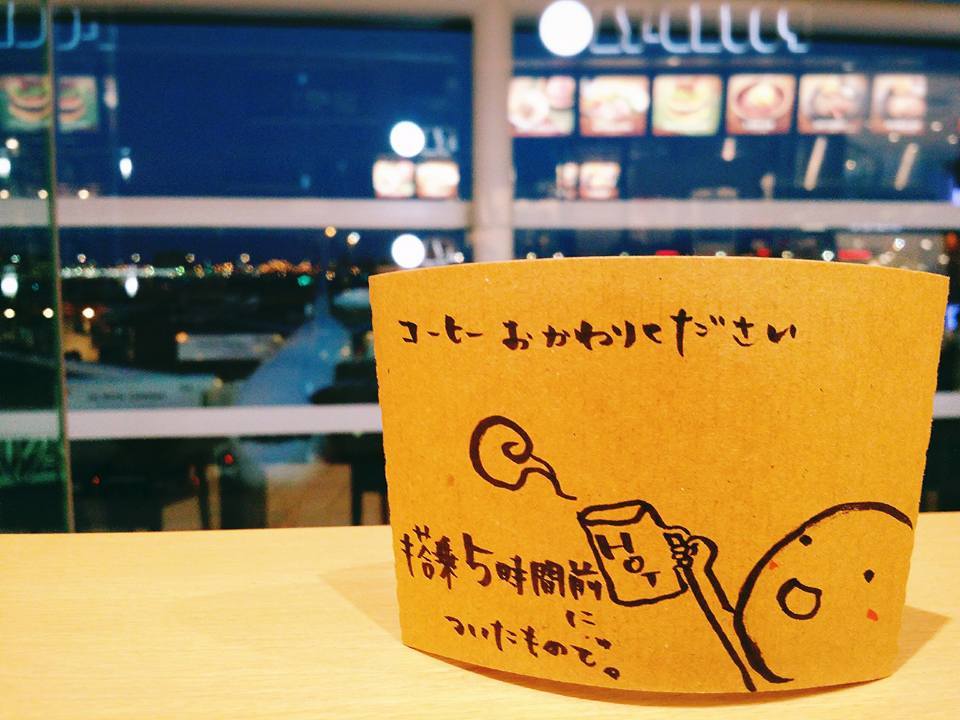 コーヒーおかわりください
HOT
搭乗5時間前
に
ついたもので。